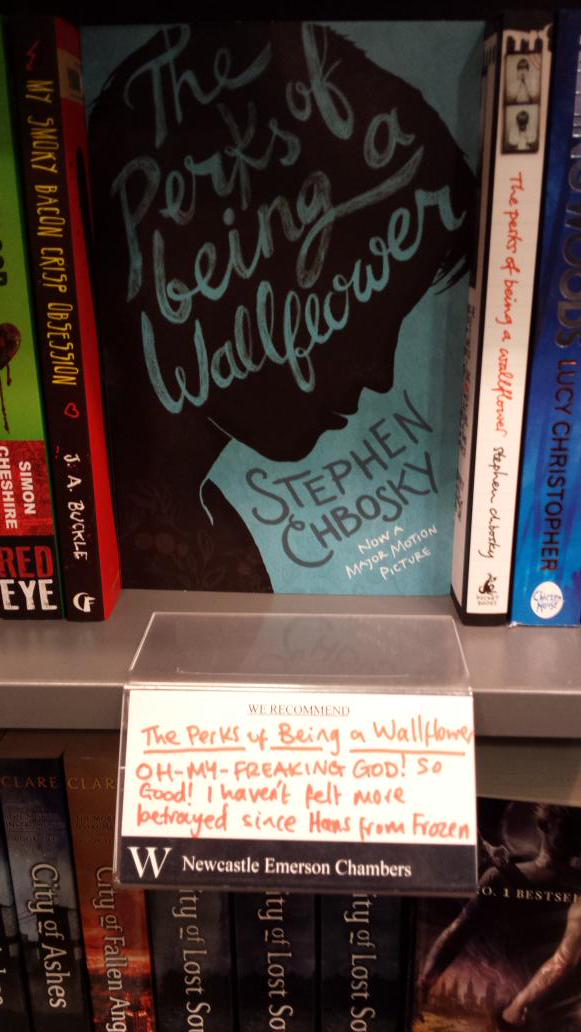 The
Perks of
being a
Wallflower
STEPHEN
CHBOSKY
NOW A
MAJOR MOTION
PICTURE
MY SMOKY BACON CRISP OBSESSION
J. A. BUCKLE
SIMON
CHESHIRE
RED
EYE
The perks of being a wallflower stephen chbosky
LUCY CHRISTOPHER
Chicken
House
WE RECOMMEND
The Perks of Being a Wallflower
OH-MY-FREAKING GOD! So
Good! I haven't felt more
betrayed since Hans from Frozen
W Newcastle Emerson Chambers
CLARE
CLAR
City of Ashes
City of Fallen Ang
ity of Lost So
ity of Lost So
ity of Lost So
NO. 1 BESTSE